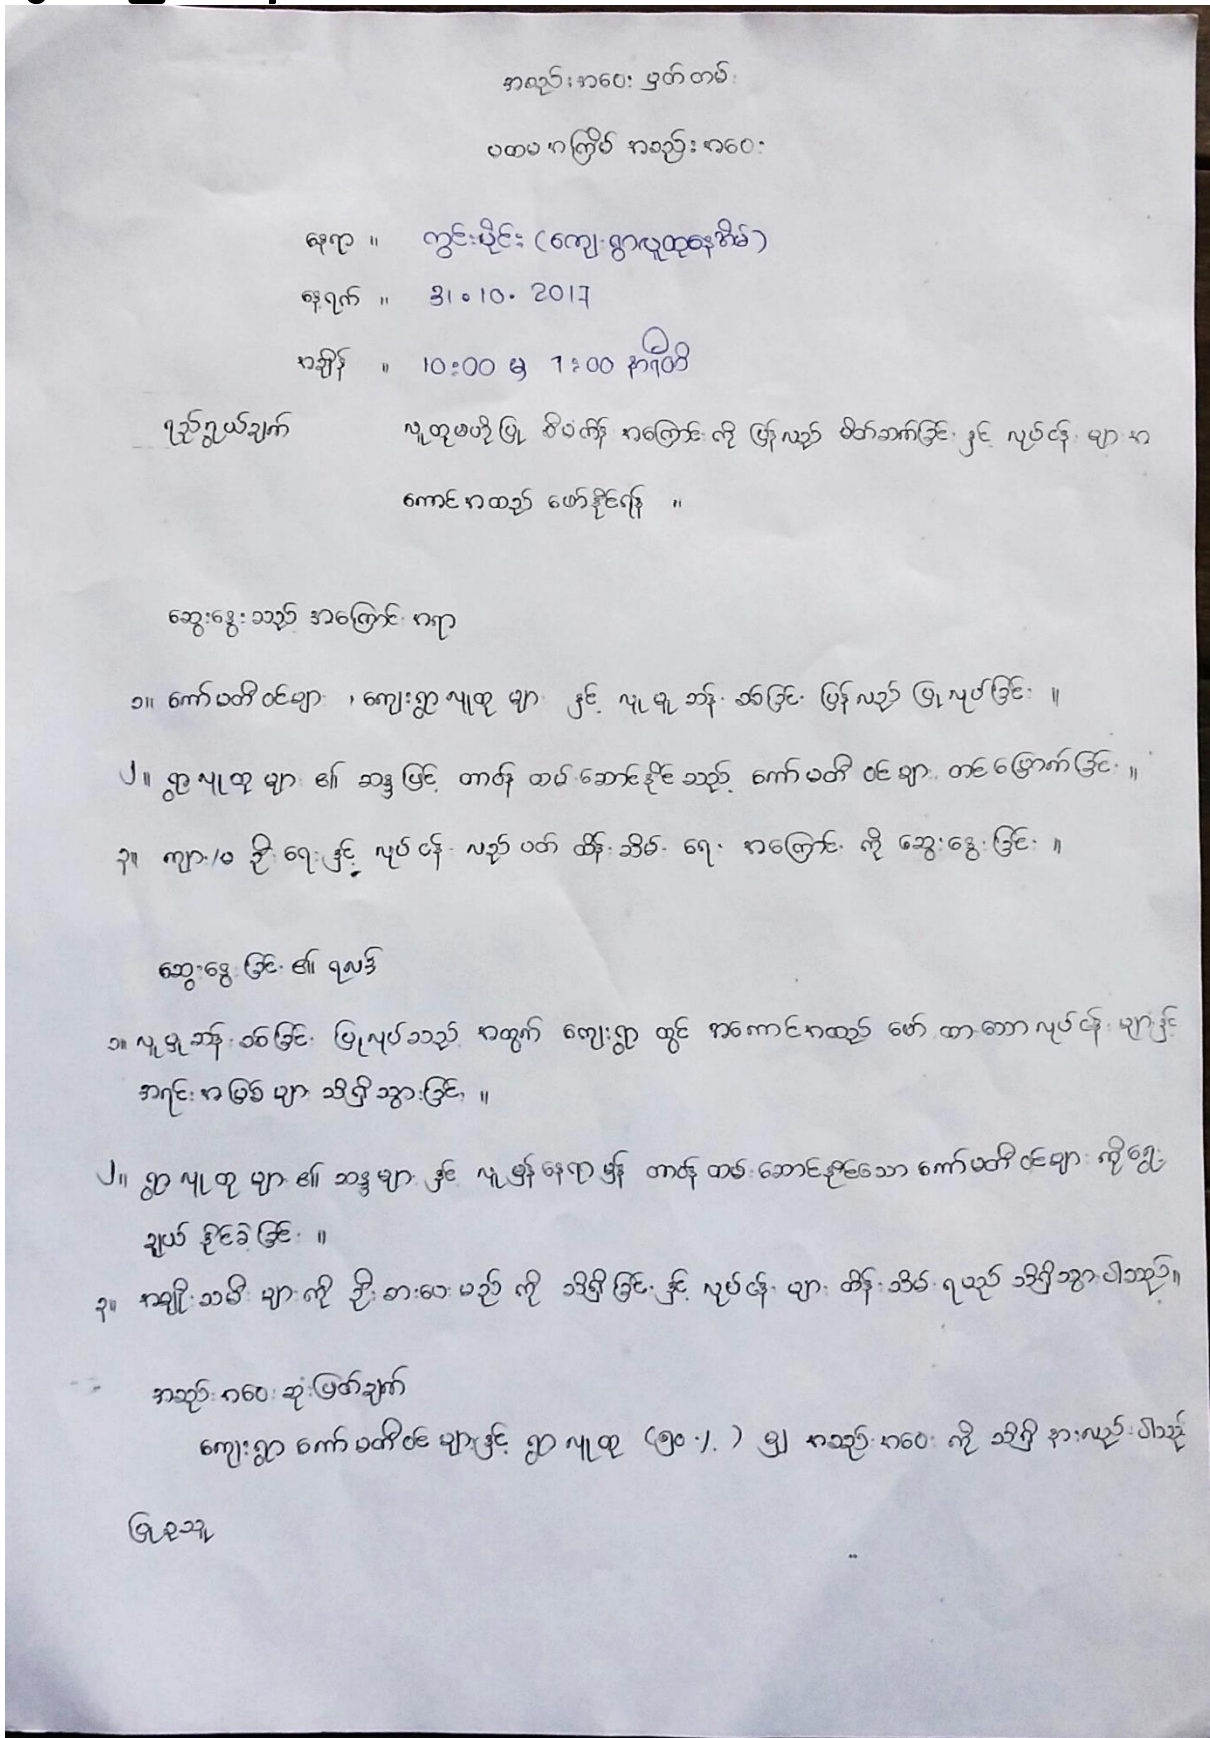 အစည်းအဝေး မှတ်တမ်း
ပထမအကြိမ် အစည်းအဝေး
နေရာ ။ ကွင်းပိုင်း (ကျေးရွာလူထုနေအိမ်)
နေ့ရက် ။ 31.10.2017
အချိန် ။ 10:00 မှ 1:00 နာရီထိ
ရည်ရွယ်ချက် လူထုဗဟိုပြု စီမံကိန်း အကြောင်းကို ပြန်လည် မိတ်ဆက်ခြင်း နှင့် လုပ်ငန်းများ အ
ကောင်အထည် ဖော်နိုင်ရန် ။
ဆွေးနွေးသည့် အကြောင်းအရာ
၁။ ကော်မတီဝင်များ ၊ ကျေးရွာလူထုများ နှင့် လူမှုဆန်းစစ်ခြင်း ပြန်လည် ပြုလုပ်ခြင်း ။
၂။ ရွာလူထုများ ၏ ဆန္ဒဖြင့် တာဝန်ထမ်းဆောင်နိုင်သည့် ကော်မတီဝင်များ တင်မြှောက်ခြင်း ။
၃။ ကျား/မ ဦးရေ နှင့် လုပ်ငန်း လည်ပတ် ထိန်းသိမ်းရေး အကြောင်းကို ဆွေးနွေးခြင်း ။
ဆွေးနွေးခြင်း ၏ ရလဒ်
၁။ လူမှုဆန်းစစ်ခြင်း ပြုလုပ်သည့်အတွက် ကျေးရွာ တွင် အကောင်အထည် ဖော်ထားသော လုပ်ငန်းများနှင့်
အရင်းအမြစ်များ သိရှိသွားခြင်း ။
၂။ ရွာလူထုများ ၏ ဆန္ဒများနှင့် လူမှန်နေရာမှန် တာဝန်ထမ်းဆောင်နိုင်သော ကော်မတီဝင်များ ကိုရွေး
ချယ်နိုင်ခဲ့ခြင်း ။
၃။ အမျိုးသမီးများကို ဦးစားပေးမည် ကို သိရှိခြင်း နှင့် လုပ်ငန်းများ ထိန်းသိမ်းရမည် သိရှိသွားပါသည်။
အစည်းအဝေး ဆုံးဖြတ်ချက်
ကျေးရွာ ကော်မတီဝင်များနှင့် ရွာလူထု (၅၀ %) မျှ အစည်းအဝေး ကို သိရှိ နားလည်ပါသည်
ပြုစုသူ